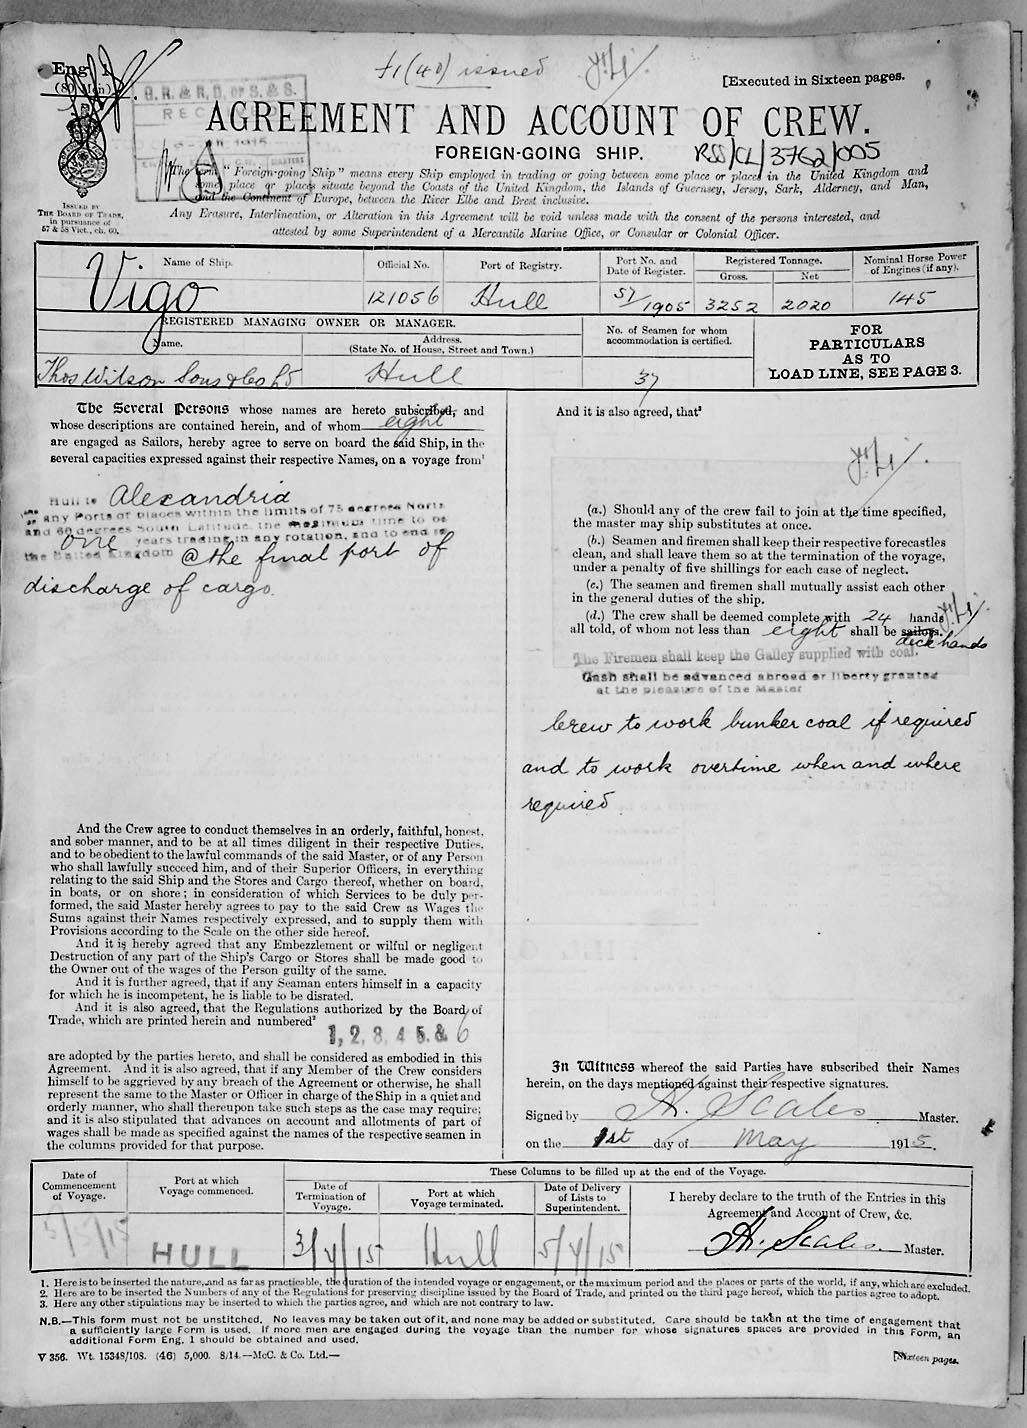 Eng. 1
(80 Men)
£1 (40) issued
[Executed in Sixteen pages.
AGREEMENT AND ACCOUNT OF CREW.
FOREIGN-GOING SHIP.
RSS/CL/3762/005
The term "Foreign-going Ship" means every Ship employed in trading or going between some place or places in the United Kingdom and
some place or places situate beyond the Coasts of the United Kingdom, the Islands of Guernsey, Jersey, Sark, Alderney, and Man,
and the Continent of Europe, between the River Elbe and Brest inclusive.
Any Erasure, Interlineation, or Alteration in this Agreement will be void unless made with the consent of the persons interested, and
attested by some Superintendent of a Mercantile Marine Office, or Consular or Colonial Officer.
ISSUED BY
THE BOARD OF TRADE,
in pursuance of
57 & 58 Vict., ch. 60.
Name of Ship.
Official No.
Port of Registry.
Port No. and
Date of Register.
Registered Tonnage.
Gross.
Net
Nominal Horse Power
of Engines (if any).
Vigo
121056
Hull
57/1905
3252
2020
145
REGISTERED MANAGING OWNER OR MANAGER.
Name.
Address.
(State No. of House, Street and Town.)
No. of Seamen for whom
accommodation is certified.
FOR
PARTICULARS
AS TO
LOAD LINE, SEE PAGE 3.
Thos Wilson Sons & Co Ld
Hull
37
The Several Persons whose names are hereto subscribed, and
whose descriptions are contained herein, and of whom eight
are engaged as Sailors, hereby agree to serve on board the said Ship, in the
several capacities expressed against their respective Names, on a voyage from¹
Hull to Alexandria
any Ports or places within the limits of 75 degrees North
and 60 degrees South Latitude, the maximum time to be
one years trading in any rotation, and to end in
the United Kingdom @ the final port of
discharge of cargo.
And the Crew agree to conduct themselves in an orderly, faithful, honest,
and sober manner, and to be at all times diligent in their respective Duties,
and to be obedient to the lawful commands of the said Master, or of any Person
who shall lawfully succeed him, and of their Superior Officers, in everything
relating to the said Ship and the Stores and Cargo thereof, whether on board,
in boats, or on shore; in consideration of which Services to be duly per-
formed, the said Master hereby agrees to pay to the said Crew as Wages the
Sums against their Names respectively expressed, and to supply them with
Provisions according to the Scale on the other side hereof.
And it is hereby agreed that any Embezzlement or wilful or negligent
Destruction of any part of the Ship's Cargo or Stores shall be made good to
the Owner out of the wages of the Person guilty of the same.
And it is further agreed, that if any Seaman enters himself in a capacity
for which he is incompetent, he is liable to be disrated.
And it is also agreed, that the Regulations authorized by the Board of
Trade, which are printed herein and numbered²
1, 2, 3, 4, 5, & 6
are adopted by the parties hereto, and shall be considered as embodied in this
Agreement. And it is also agreed, that if any Member of the Crew considers
himself to be aggrieved by any breach of the Agreement or otherwise, he shall
represent the same to the Master or Officer in charge of the Ship in a quiet and
orderly manner, who shall thereupon take such steps as the case may require;
and it is also stipulated that advances on account and allotments of part of
wages shall be made as specified against the names of the respective seamen in
the columns provided for that purpose.
And it is also agreed, that³
(a.) Should any of the crew fail to join at the time specified,
the master may ship substitutes at once.
(b.) Seamen and firemen shall keep their respective forecastles
clean, and shall leave them so at the termination of the voyage,
under a penalty of five shillings for each case of neglect.
(c.) The seamen and firemen shall mutually assist each other
in the general duties of the ship.
(d.) The crew shall be deemed complete with 24 hands
all told, of whom not less than eight shall be sailors.
deck hands
The Firemen shall keep the Galley supplied with coal.
Cash shall be advanced abroad or liberty granted
at the pleasure of the Master
Crew to work bunker coal if required
and to work overtime when and where
required
In Witness whereof the said Parties have subscribed their Names
herein, on the days mentioned against their respective signatures.
Signed by A. Scales Master.
on the 1st day of May 1915.
Date of
Commencement
of Voyage.
Port at which
Voyage commenced.
These Columns to be filled up at the end of the Voyage.
Date of
Termination of
Voyage.
Port at which
Voyage terminated.
Date of Delivery
of Lists to
Superintendent.
I hereby declare to the truth of the Entries in this
Agreement and Account of Crew, &c.
HULL
3/7/15
Hull
5/7/15
A. Scales. Master.
1. Here is to be inserted the nature, and as far as practicable, the duration of the intended voyage or engagement, or the maximum period and the places or parts of the world, if any, which are excluded.
2. Here are to be inserted the Numbers of any of the Regulations for preserving discipline issued by the Board of Trade, and printed on the third page hereof, which the parties agree to adopt.
3. Here any other stipulations may be inserted to which the parties agree, and which are not contrary to law.
N.B.—This form must not be unstitched. No leaves may be taken out of it, and none may be added or substituted. Care should be taken at the time of engagement that
a sufficiently large Form is used. If more men are engaged during the voyage than the number for whose signatures spaces are provided in this Form, an
additional Form Eng. 1 should be obtained and used.
V 356. Wt. 15348/108. (46) 5,000. 8/14.—McC. & Co. Ltd.—
[Sixteen pages.